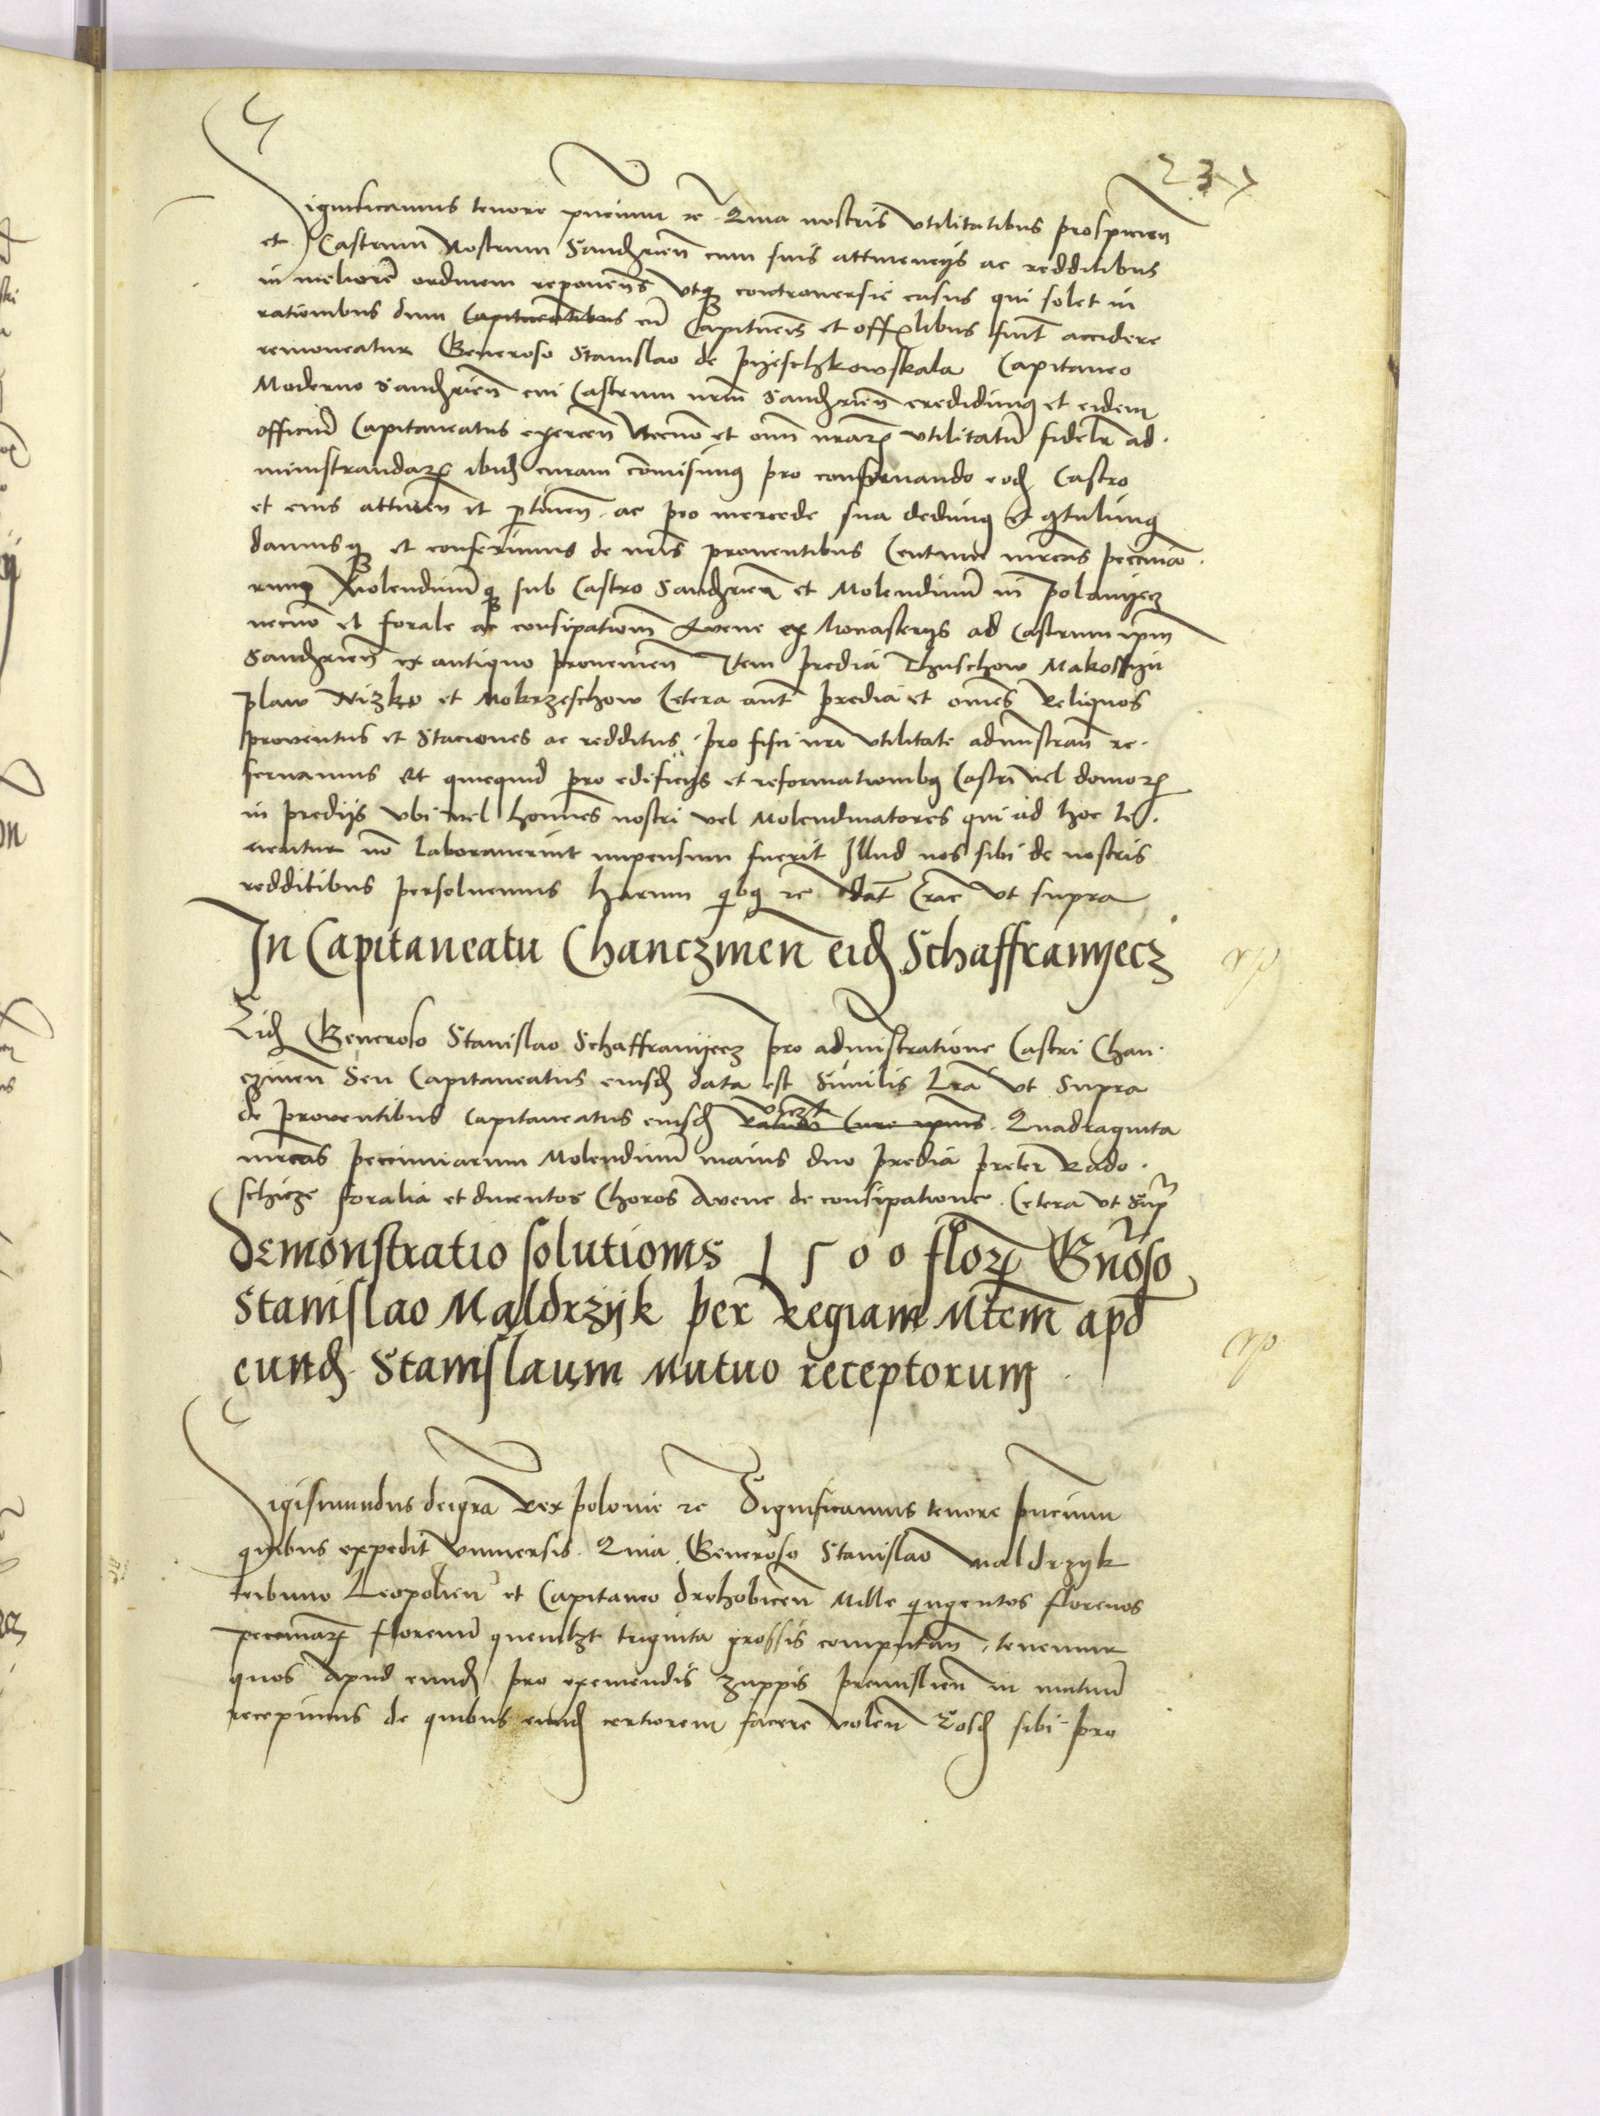 237
Significamus tenore pñcium ꝛc Quia nostris vtilitatibus prospicieñ
et Castrum Nostrum Sandzrieñ cum suis attinencijs ac redditibus
in meliorẽ ordinem reponeñs vtqꝫ controuersie casus qui solet in
rationibus dum Capitaneatibus cũ Capitneis et officialibus fiunt accidere
remoueatur Generoso Stanislao de Pyeschkowskala Capitaneo
Moderno Sandzrieñ cui Castrum nrm̃ Sandzrieñ credidimꝰ et eidem
officiũ Capitaneatus exerceñ Necnõ et oim̃ nrarꝝ vtilitatũ fidelr̃ ad-
ministrandarꝝ ibidẽ curam cõmisimꝰ pro conseruando eodẽ Castro
et eius attineñ et ꝑtineñ ac pro mercede sua dedimꝰ et ꝯtulimꝰ
damusqꝫ et conferimus de nris̃ prouentibus Centum mrcas̃ pecunia-
rum Molendinũ qꝫ sub Castro Sandzrieñ et Molendinũ in Polanyecz
necnõ et forale ac consipationẽ Avene ex Monasterijs ad Castrum ipm̃
Sandzrieñ ex antiquo prouenieñ Item predia Thuschow Makoszyn
Plaw Nizko et Mokrzeschow Cetera aut̃ predia et omẽs reliquos
prouentus et Staciones ac redditus pro fisci nri vtilitate administrañ re-
seruamus Et quicquid pro edificijs et reformationibꝰ Castri vel domorꝝ
in predijs vbi vel homĩes nostri vel Molendinatores qui ad hoc te-
nentur nõ laborauerint impensum fuerit Illud nos sibi de nostris
redditibus persoluemus Harum qibꝰ ꝛc dat̃ Crac̃ vt supra
In Capitaneatu Chanczineñ eidẽ Schaffranyecz
Eidẽ Generoso Stanislao Schaffranyecz pro administratione Castri Chan-
czineñ Seu Capitaneatus eiusdẽ data est Similis Lr̃a vt Supra
de prouentibus Capitaneatus eiusdẽ Quadraginta
mrcas̃ pecuniarum Molendinũ maius duo predia preter Rado-
schicze foralia et ducentos Choros Avene de consipatione Cetera vt Supr̃
Demonstratio solutionis 1500 florꝝ Gñoso
Stanislao Maldrzyk per Regiam Mtem̃ apd̃
eundẽ Stanislaum Mutuo receptorum
Sigismundus dei gra Rex Polonie ꝛc Significamus tenore pñcium
quibus expedit vniuersis Quia Generoso Stanislao Maldrzyk
tribuno Leopolieñ et Capitaneo Drohobiceñ Mille qingentos florenos
pecuniarꝝ florenũ quemlꝫt triginta grossis computañ tenemur
quos apud eundẽ pro exemendis zuppis Premislieñ in mutuũ
recepimus de quibus eundẽ certiorem facere voleñ Eosdẽ sibi pro